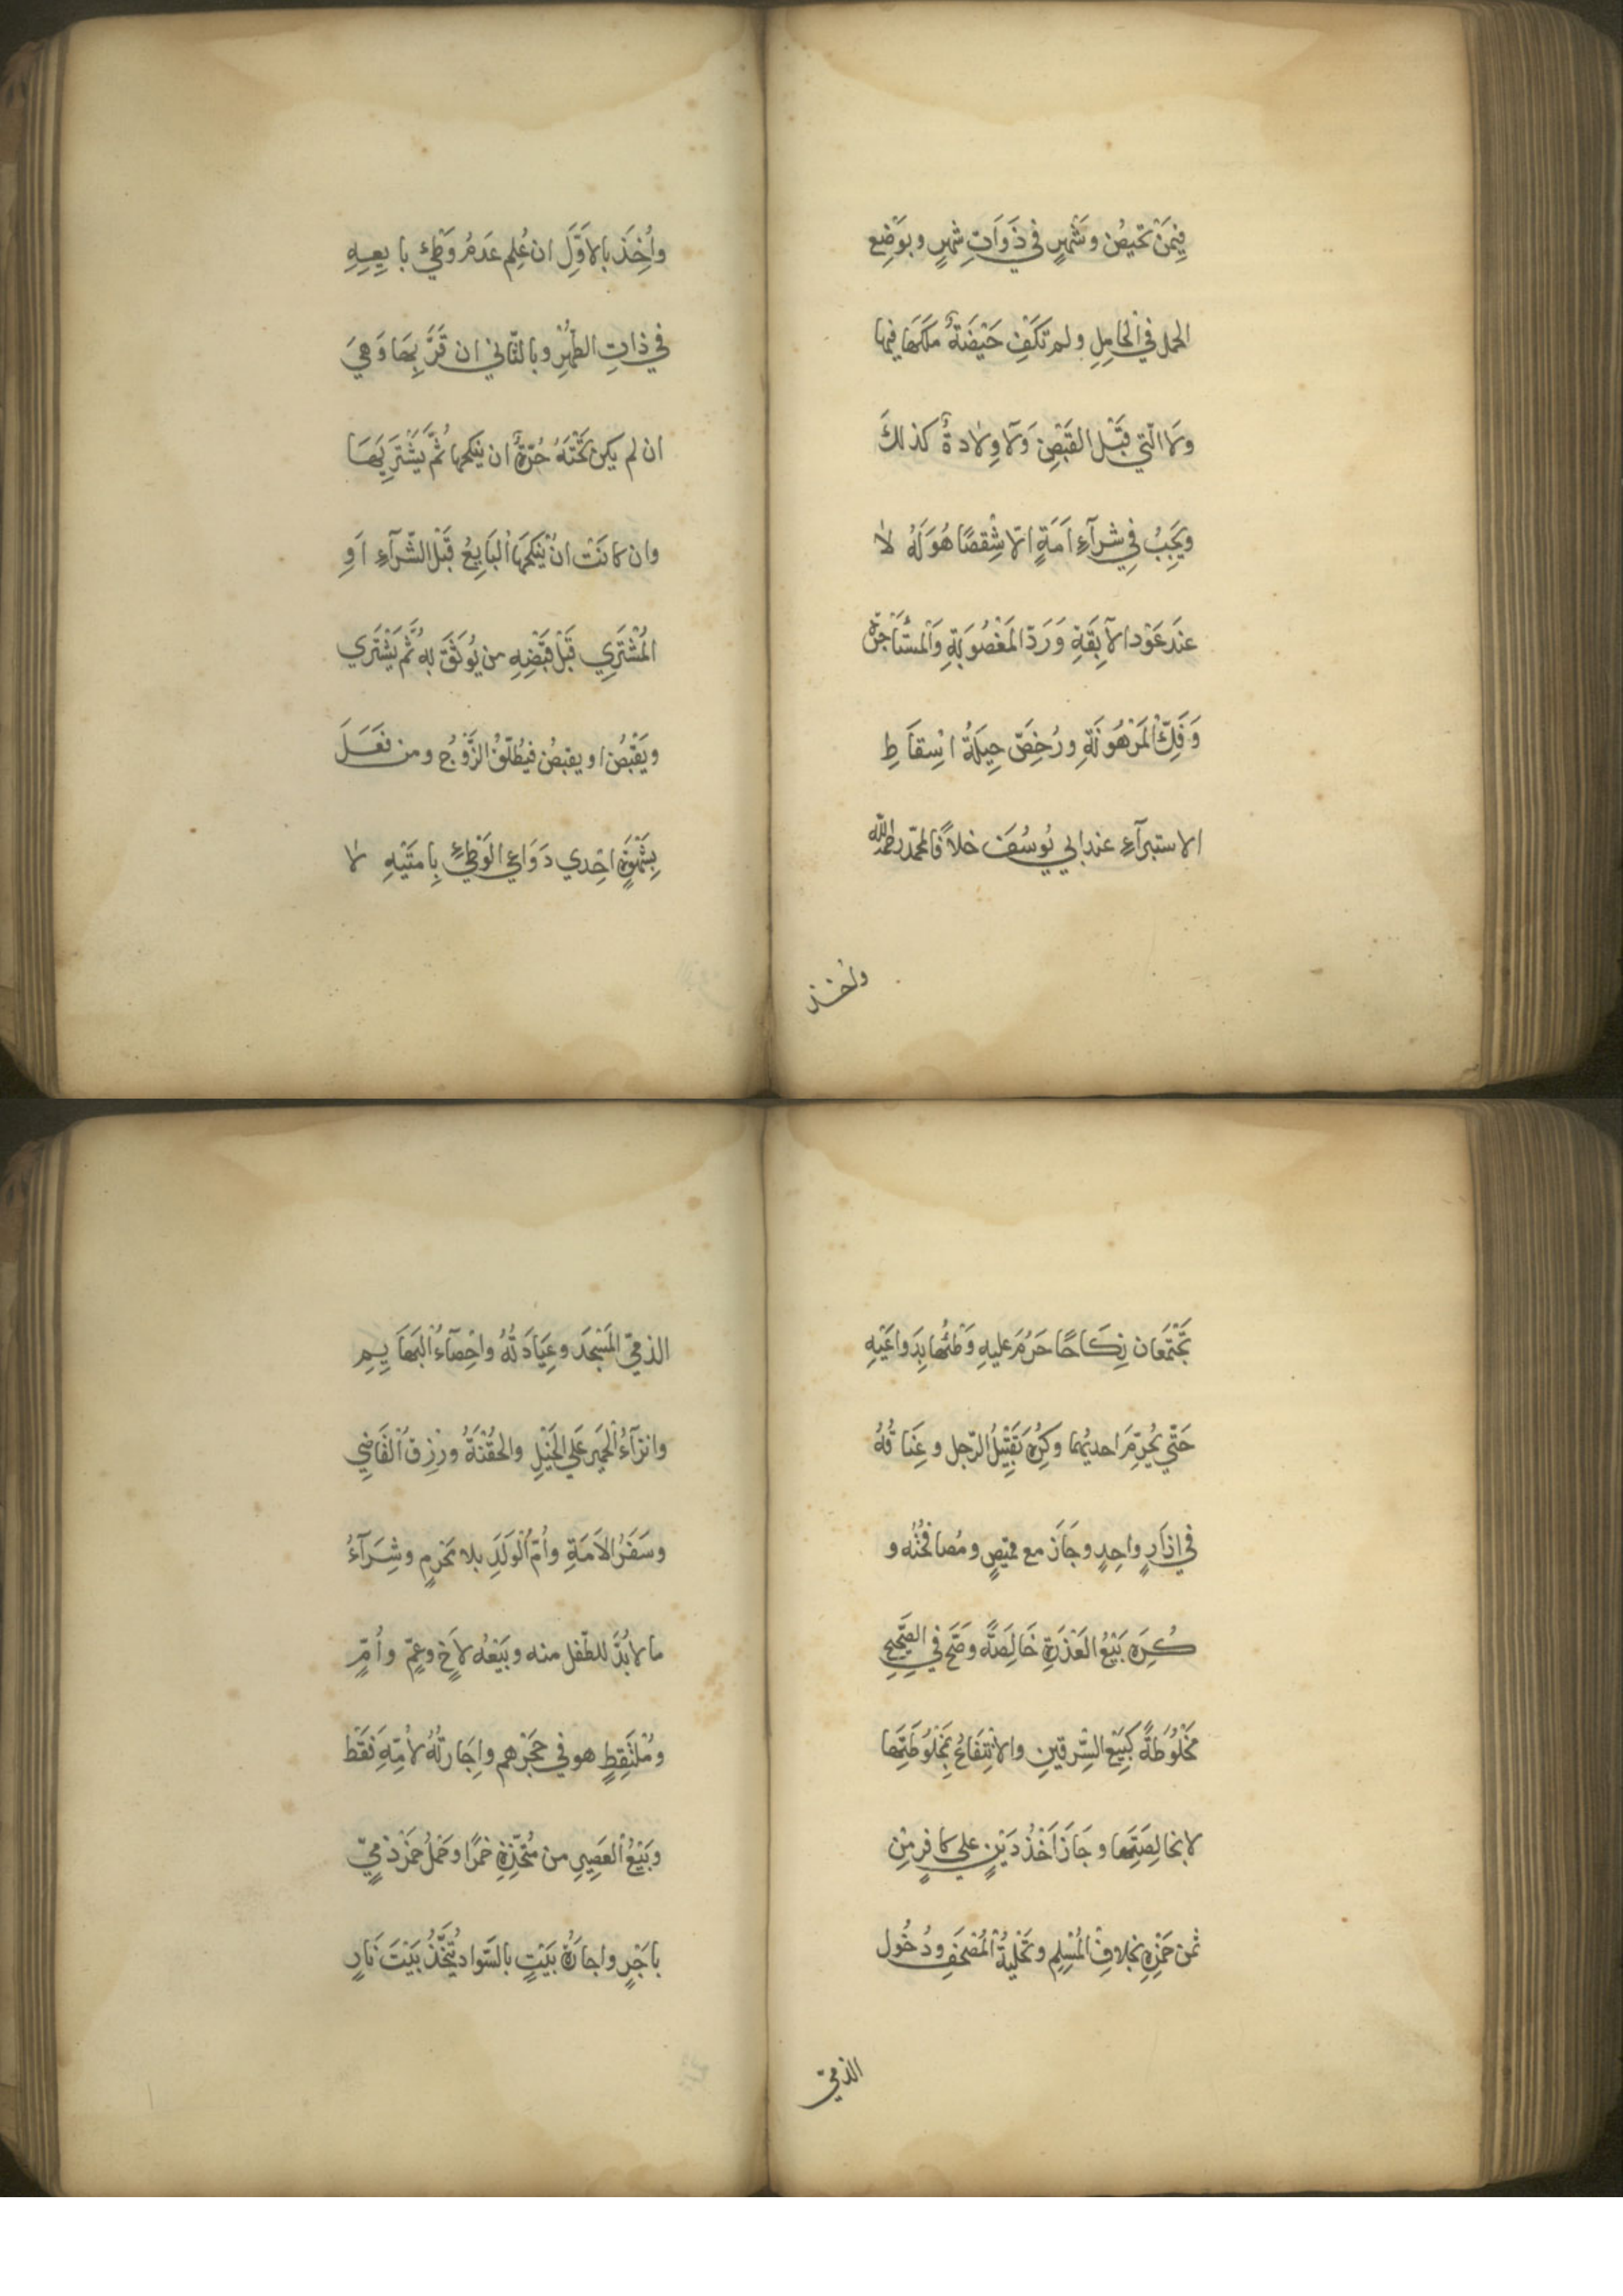 فِيمَنْ تَحِيضُ وشَهْرٍ في ذَوَاتِ شهرٍ وبوَضْعِ
الحمل في الْحَامِلِ ولم تَكْفِ حَيْضَةٌ مَلَكَهَا فيها
ولا الّتي قَبْل القَبْضِ وَلا وِلادةٌ كذلكَ
ويَجِبُ فِي شرآءِ اَمَةٍ الّا شِقْصًا هُوَ لَهُ لا
عندَ عَوْدِ الآبِقَةِ وَرَدّ المَغْصُوبَةِ وَالْمُسْتَأْجَرَةِ
وَفَكِّ الْمَرْهُونَةِ ورُخِصَّ حِيلَةُ اسْقاَطِ
الاستبرآءِ عند ابي يُوسُفَ خلافًا لمحمّد رحمه الله
واُخذ
واُخِذَ بالاَوَّلِ ان عُلِم عَدَمُ وَطْئِ بايِعِهِ
في ذاتِ الطُّهْرِ وبالثّاني ان قَرَّ بِهَا وَهيَ
ان لم يكن تَحْتَهُ حُرّةٌ ان ينكحها ثُمَّ يَشْتَرِيَهَا
وان كانَتْ انْ يَنْكحَهَا الْبَايِعُ قَبْلَ الشّرآءِ اَوِ
المُشْتَرِي قَبْلَ قَبْضِهِ من يُوثَقُ بِهِ ثُمَّ يَشْتَري
ويَقْبِضُ او يقبضُ فيُطَلّقُ الزَّوْجُ ومن فَعَلَ
بِشَهْوَةٍ اِحْدي دَوَاعِي الوَطْئِ بِاَمَتَيْهِ لا
تَجْتَمِعَان نِكَاحًا حَرُمَ عليهِ وَطْئُهَا بِدَوَاعِيْهِ
حَتّي يُحَرِّمَ احديهُما وكُرِهَ تَقْبِيْلُ الرّجل وعِنَاقُهُ
في ازارٍ واحِدٍ وجَازَ مع قميصٍ ومُصافَحَتُه و
كُرِهَ بَيْعُ العَذرَةِ خَالِصَةً وصَحَّ في الصَّحِيحِ
مَخْلُوطَةً كَبَيْعِ السِّرقينِ والانْتِفَاعُ بِمَخْلُوطَتِهَا
لا بخالِصَتِهَا وجَازَ اَخْذُ دَيْنٍ علي كافرٍ مِنْ
ثمن خَمْرِهِ بخلافِ الْمُسْلِمِ وتَحْلِيَةُ الْمُصْحَفِ ودُخُول
الذميّ
الذميّ المَسْجِدَ وعِيَادَتُهُ واخْصَآءُ الْبَهَايِمِ
وانزآءُ الْحَمير عَلي الْخَيْلِ والحُقْنَةُ ورِزْق الْقَاضِي
وسَفَرُ الاَمَةِ واُمّ الْوَلَدِ بلا مَحْرَمٍ وشِرَآءُ
ما لابُدَّ للطّفل منه وبَيْعُه لاَخٍ وعمٍّ واُمٍّ
ومُلْتَقِطٍ هو في حَجْرهم واِجَارتُهُ لاُمِّهِ فَقَط
وبَيْعُ الْعَصِيرِ من مُتّخِذِهِ خمرًا وحَمْلُ خَمْرِ ذِمّيٍّ
باَجْرٍ واجارَةُ بَيْتٍ بالسَّواد يُتَّخَذُ بَيْتَ نَارٍ